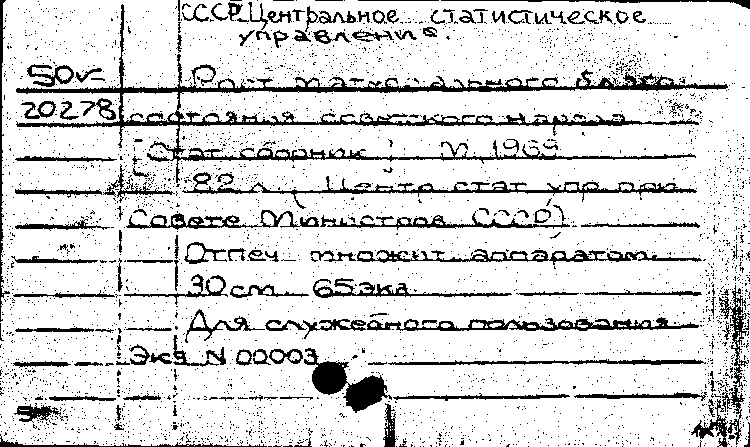 СССР. Центральное статистическое
управление.
50 Рост материального благо-
20278 состояния советского народа
[Стат сборник]. М, 1969
82 л., (Центр стат упр при
Совете Министров СССР)
Отпеч множит аппаратом.
30 см. 65 экз.
Для служебного пользования
Экз N 00003